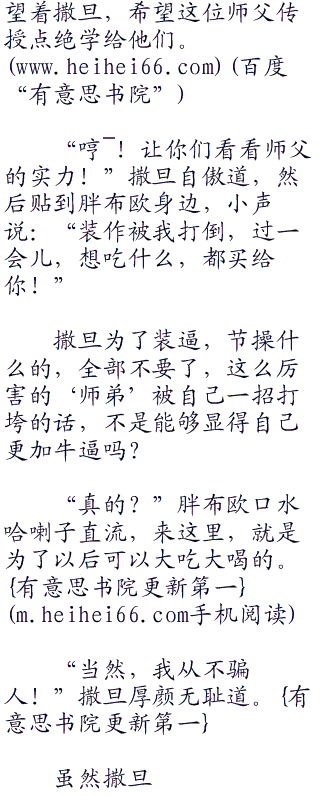 望着撒旦，希望这位师父传
授点绝学给他们。
(www.heihei66.com)(百度
“有意思书院”)
“哼¯！让你们看看师父
的实力！”撒旦自傲道，然
后贴到胖布欧身边，小声
说：“装作被我打倒，过一
会儿，想吃什么，都买给
你！”
撒旦为了装逼，节操什
么的，全部不要了，这么厉
害的‘师弟’被自己一招打
垮的话，不是能够显得自己
更加牛逼吗？
“真的？”胖布欧口水
哈喇子直流，来这里，就是
为了以后可以大吃大喝的。
{有意思书院更新第一}
(m.heihei66.com手机阅读)
“当然，我从不骗
人！”撒旦厚颜无耻道。{有
意思书院更新第一}
虽然撒旦